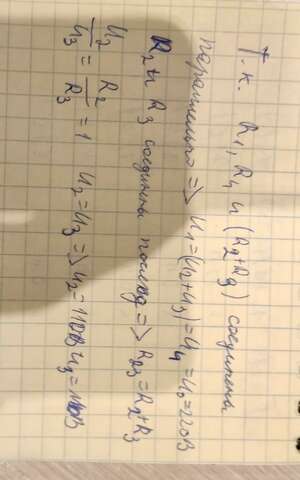 Т.к. R₁, R₄ и (R₂+R₃) соединены
параллельно => U₁=(U₂+U₃)=U₄=U₀=220В
R₂ и R₃ соединены послед => R₂₃=R₂+R₃
U₂/U₃ = R₂/R₃ = 1 U₂=U₃ => U₂=110В U₃=110В